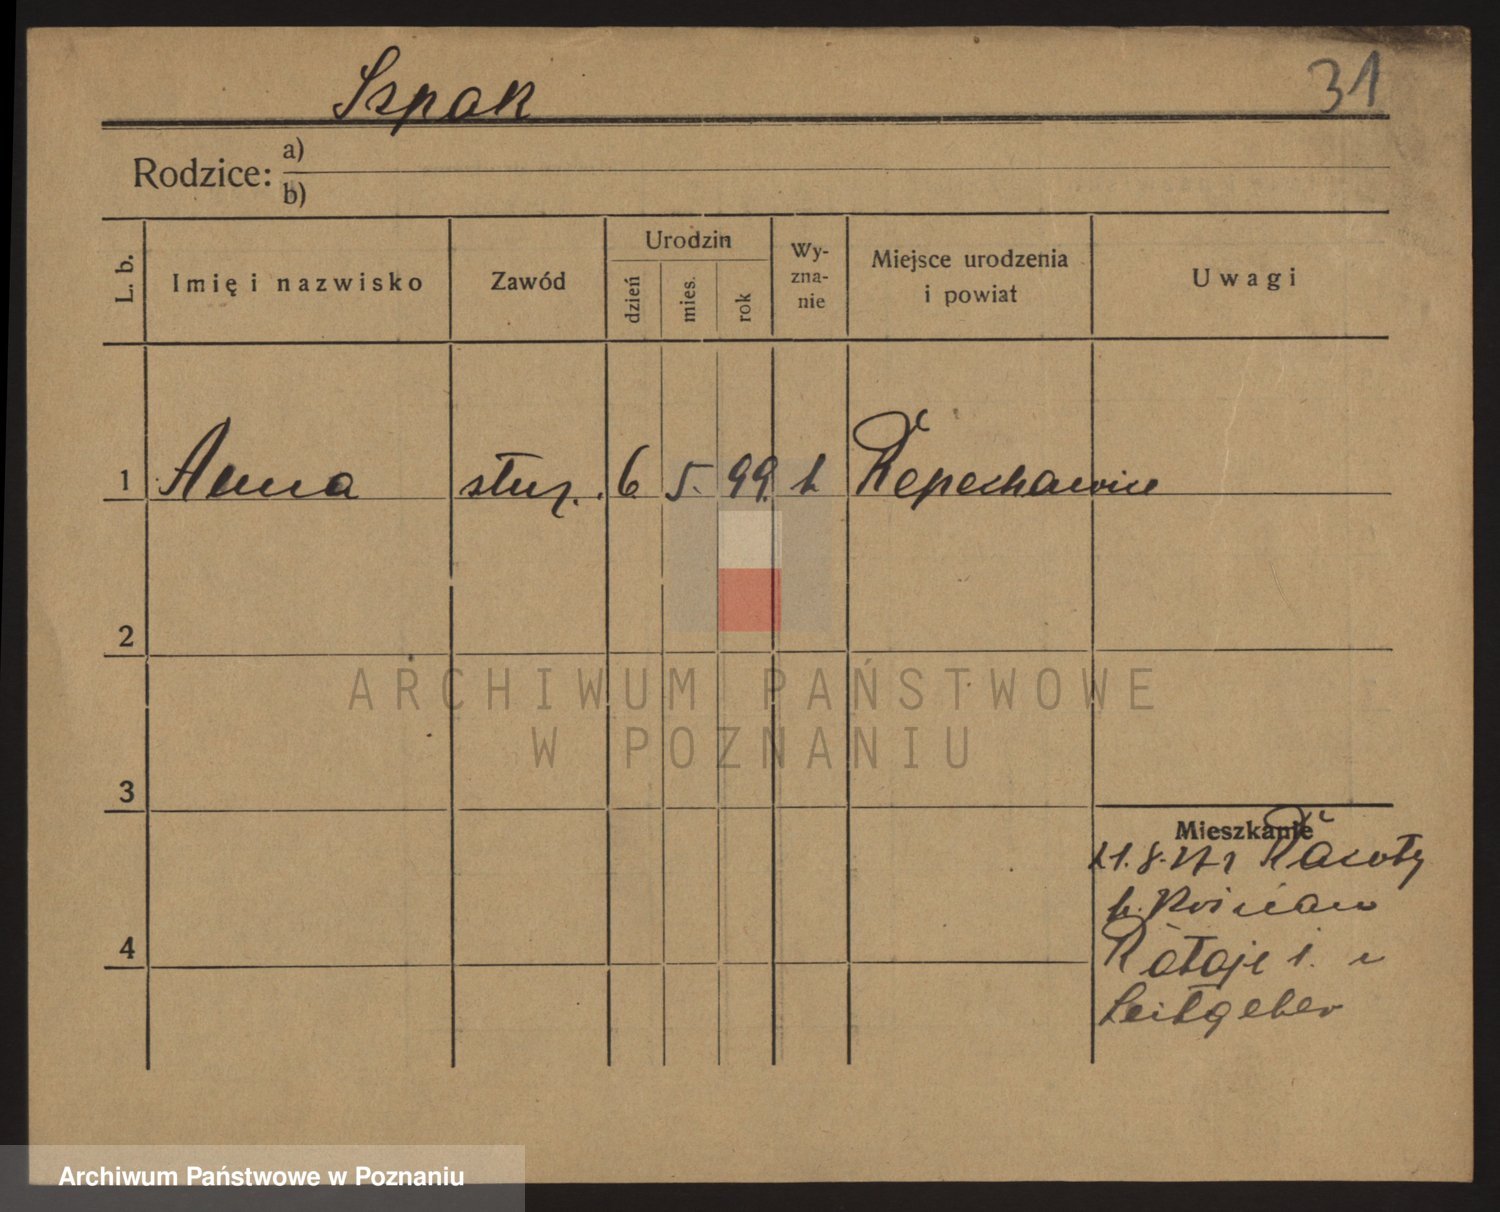 Szpak
31
Rodzice: a)
b)
L. b. Imię i nazwisko Zawód Urodzin dzień mies. rok Wyznanie Miejsce urodzenia i powiat Uwagi
1 Anna służ. 6 5. 99. k
2
ARCHIWUM PAŃSTWOWE
W POZNANIU
3
Mieszkanie
Racoty
p. Kościan
4
Rataje 1. u
Leitgeber
Archiwum Państwowe w Poznaniu